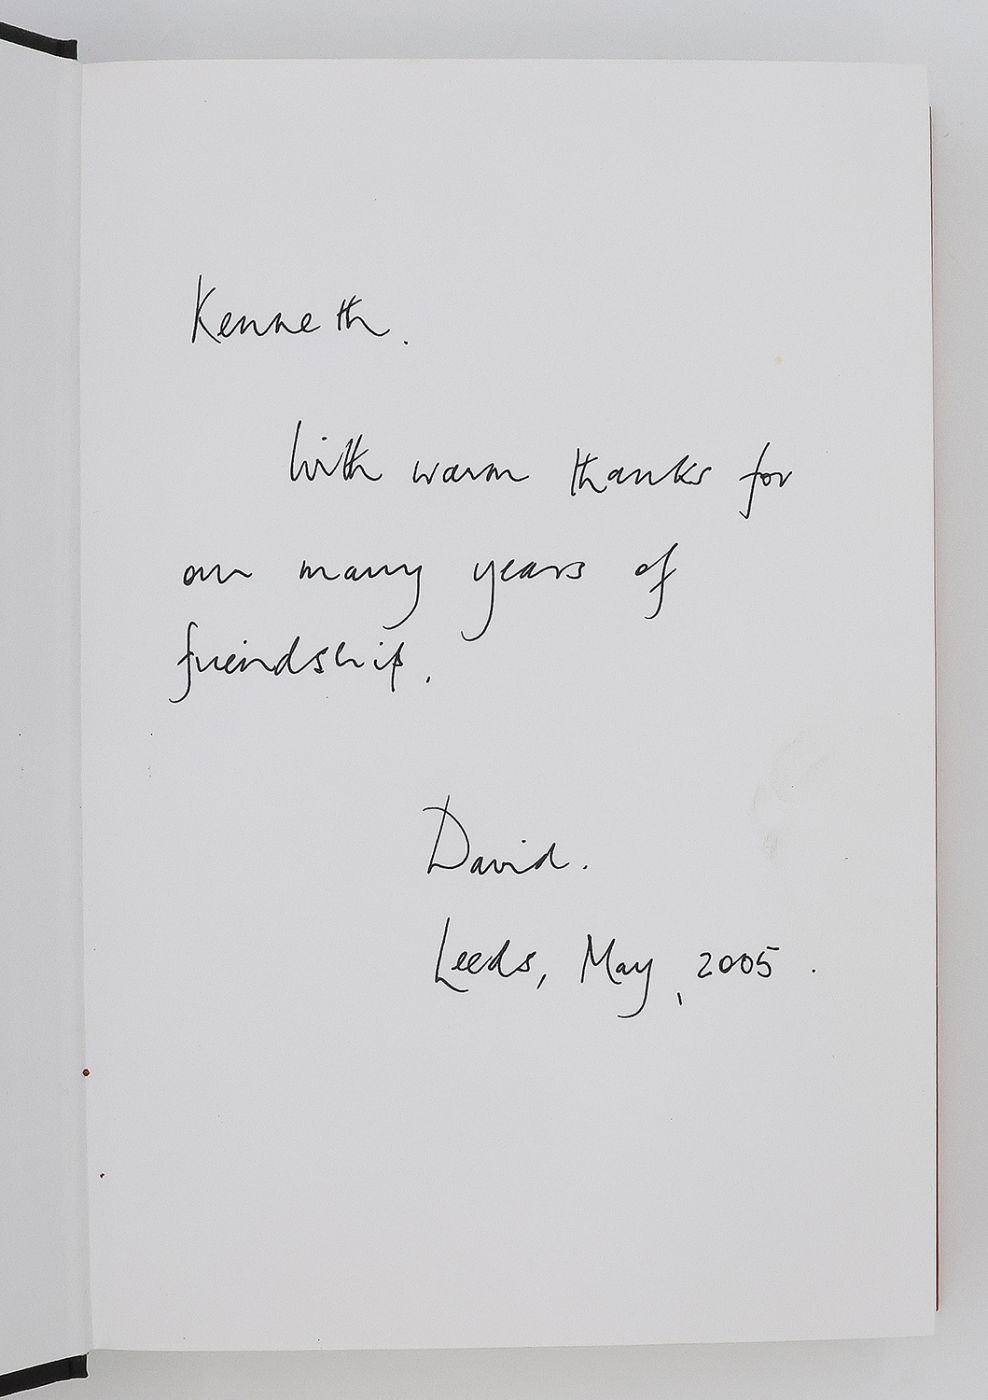 Kenneth.
With warm thanks for
our many years of
friendship.
David.
Leeds, May, 2005.